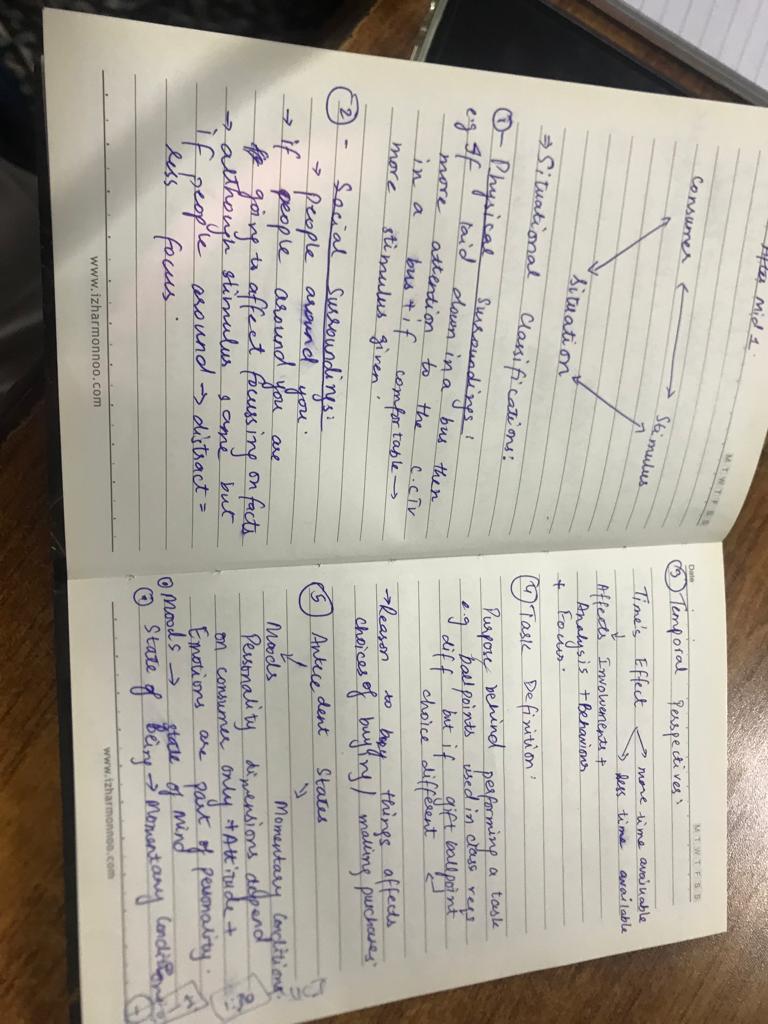 After Mid 1.
M T W T F S S
Consumer
Stimulus
Situation
⇒ Situational Classifications:
① - Physical Surroundings:
e.g If laid down in a bus then
more attention to the C.CTV
in a bus + if comfortable →
more stimulus given.
② - Social Surroundings:
→ people around you.
→ if people around you are
going to affect focussing on facts
→ although stimulus same but
if people around → distract =
less focus.
www.izharmonnoo.com
Date
M T W T F S S
③ Temporal Perspectives:
Time's Effect → more time available
→ less time available
↓
Affects Involvements +
Analysis + Behaviours
+ Focus.
④ Task Definition:
Purpose behind performing a task
e.g ballpoints used in class reqs
diff but if gift ballpoint
choice different
→ Reason to buy things affects
choices of buying / making purchases.
⑤ Antecedent States
Moods Momentary Conditions.
Personality dimensions depend
on consumer only + Attitude +
Emotions are part of personality.
Moods → state of mind
State of Being → Momentary Conditions
www.izharmonnoo.com